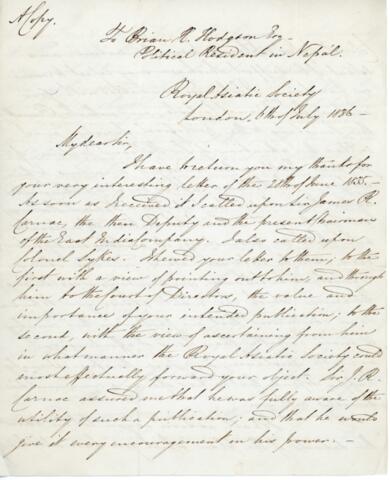 A Copy.
To Brian H. Hodgson Esq.
Political Resident in Nepal.
Royal Asiatic Society
London, 6th of July 1836 -
My dear Sir,
I have to return you my thanks for
your very interesting letter of the 28th of June 1835.
As soon as I received it I called upon Sir James R.
Carnac, the then Deputy and the present Chairman
of the East India Company. I also called upon
Colonel Sykes. I shewed your letter to them; to the
first with a view of pointing out to him, and through
him to the Court of Directors, the value and
importance of your intended publication; to the
second, with the view of ascertaining from him
in what manner the Royal Asiatic Society could
most effectually forward your object. Sir J. R.
Carnac assured me that he was fully aware of the
utility of such a publication; and that he would
give it every encouragement in his power. -